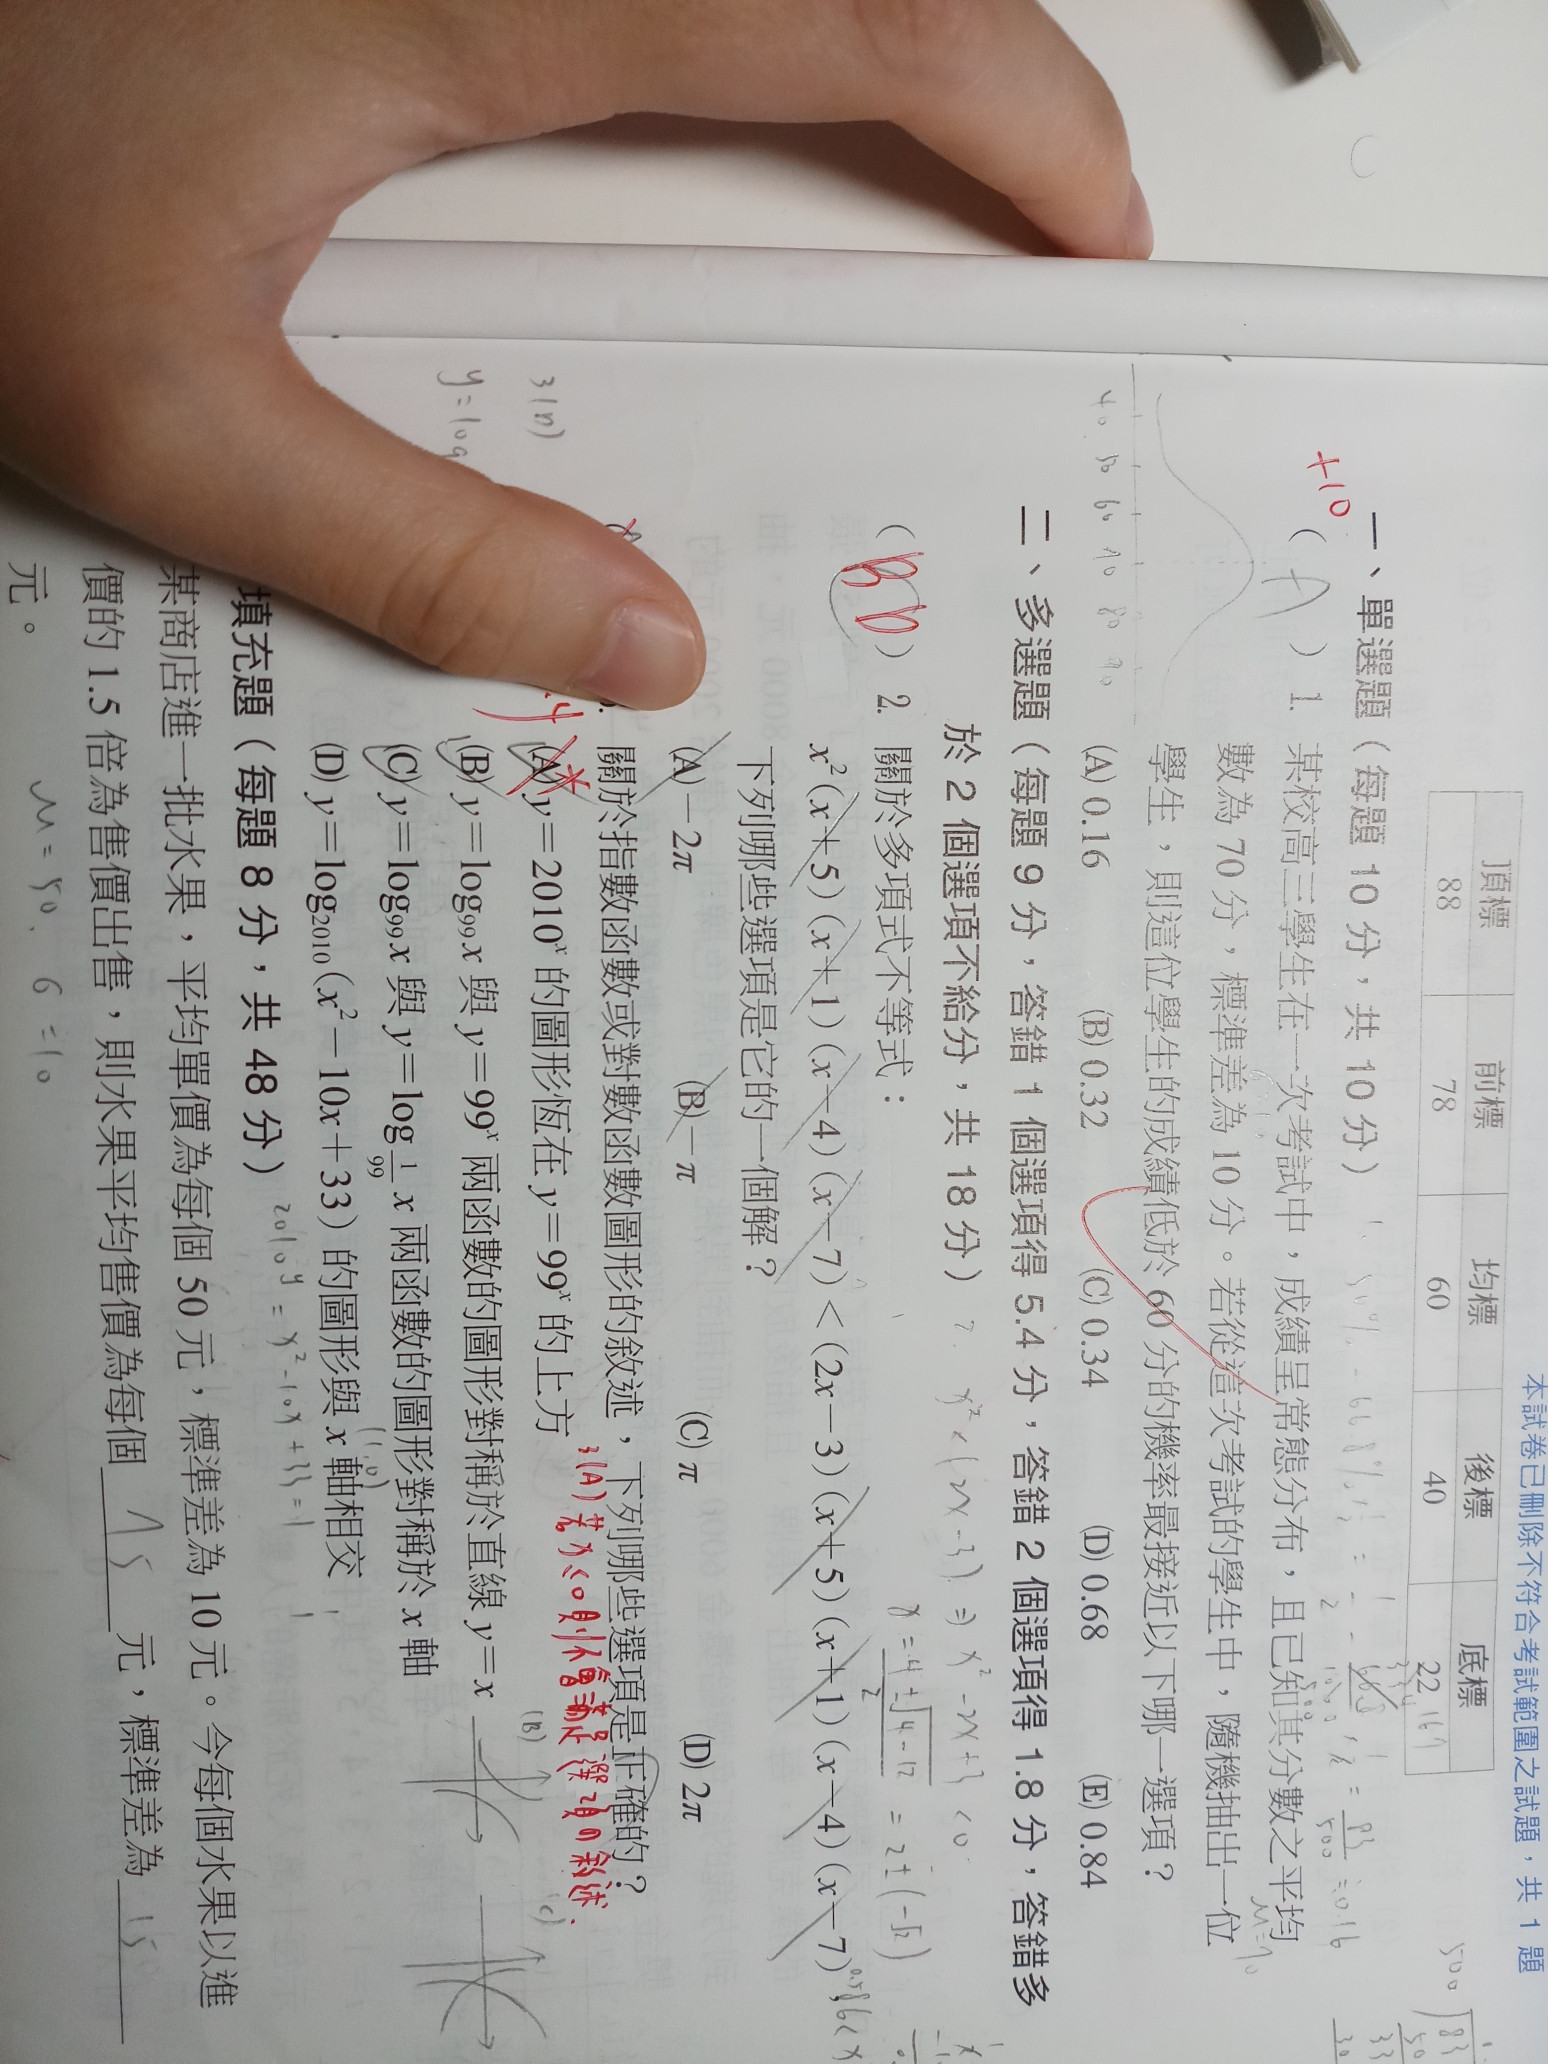 本試卷已刪除不符合考試範圍之試題，共 1 題
頂標 前標 均標 後標 底標
88 78 60 40 22
一、單選題（每題 10 分，共 10 分）
+10
( A ) 1. 某校高三學生在一次考試中，成績呈常態分布，且已知其分數之平均
數為 70 分，標準差為 10 分。若從這次考試的學生中，隨機抽出一位
學生，則這位學生的成績低於 60 分的機率最接近以下哪一選項？
(A) 0.16 (B) 0.32 (C) 0.34 (D) 0.68 (E) 0.84
40 50 60 70 80 90
二、多選題（每題 9 分，答錯 1 個選項得 5.4 分，答錯 2 個選項得 1.8 分，答錯多
於 2 個選項不給分，共 18 分）
2. x²<(2x-3) ⇒ x²-2x+3<0
( BD ) 2. 關於多項式不等式：
x²(x+5)(x+1)(x-4)(x-7)<(2x-3)(x+5)(x+1)(x-4)(x-7)，
下列哪些選項是它的一個解？
(A) -2π (B) -π (C) π (D) 2π
關於指數函數或對數函數圖形的敘述，下列哪些選項是正確的？
3(A) 若 x<0 則不會滿足選項的敘述.
(A) y=2010ˣ 的圖形恆在 y=99ˣ 的上方
(B) y=log₉₉x 與 y=99ˣ 兩函數的圖形對稱於直線 y=x
(B)
(C)
(C) y=log₉₉x 與 y=log_{1/99} x 兩函數的圖形對稱於 x 軸
(1,0)
(D) y=log₂₀₁₀(x²-10x+33) 的圖形與 x 軸相交
3(D)
y=log
2010ʸ = x²-10x+33=1
填充題（每題 8 分，共 48 分）
某商店進一批水果，平均單價為每個 50 元，標準差為 10 元。今每個水果以進
價的 1.5 倍為售價出售，則水果平均售價為每個 75 元，標準差為 15
元。
μ=50、σ=10